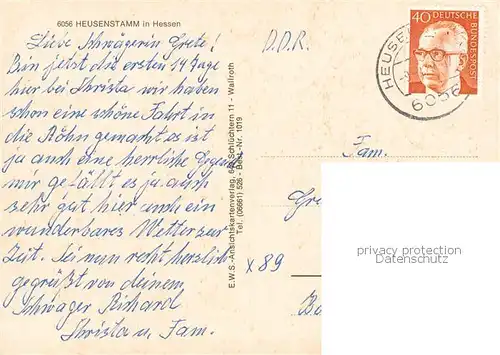 6056 HEUSENSTAMM in Hessen
Liebe Schwägerin Grete!
Bin jetzt die ersten 14 Tage
hier bei Christa wir haben
schon eine schöne Fahrt in
die Röhn gemacht es ist
ja auch eine herrliche Gegend
mir gefällt es ja auch
sehr gut hier und ein
wunderbares Wetter zur
Zeit. Sei nun recht herzlich
gegrüßt von deinem
Schwager Richard
Christa u. Fam.
E.W.S.-Ansichtskartenverlag, 649 Schlüchtern 11 - Wallroth
Tel. (06661) 526 - Best.-Nr. 1019
D.D.R.
40 DEUTSCHE BUNDESPOST
HEUSE
6056
Fam.
Gre
x 89
Ba
privacy protection
Datenschutz